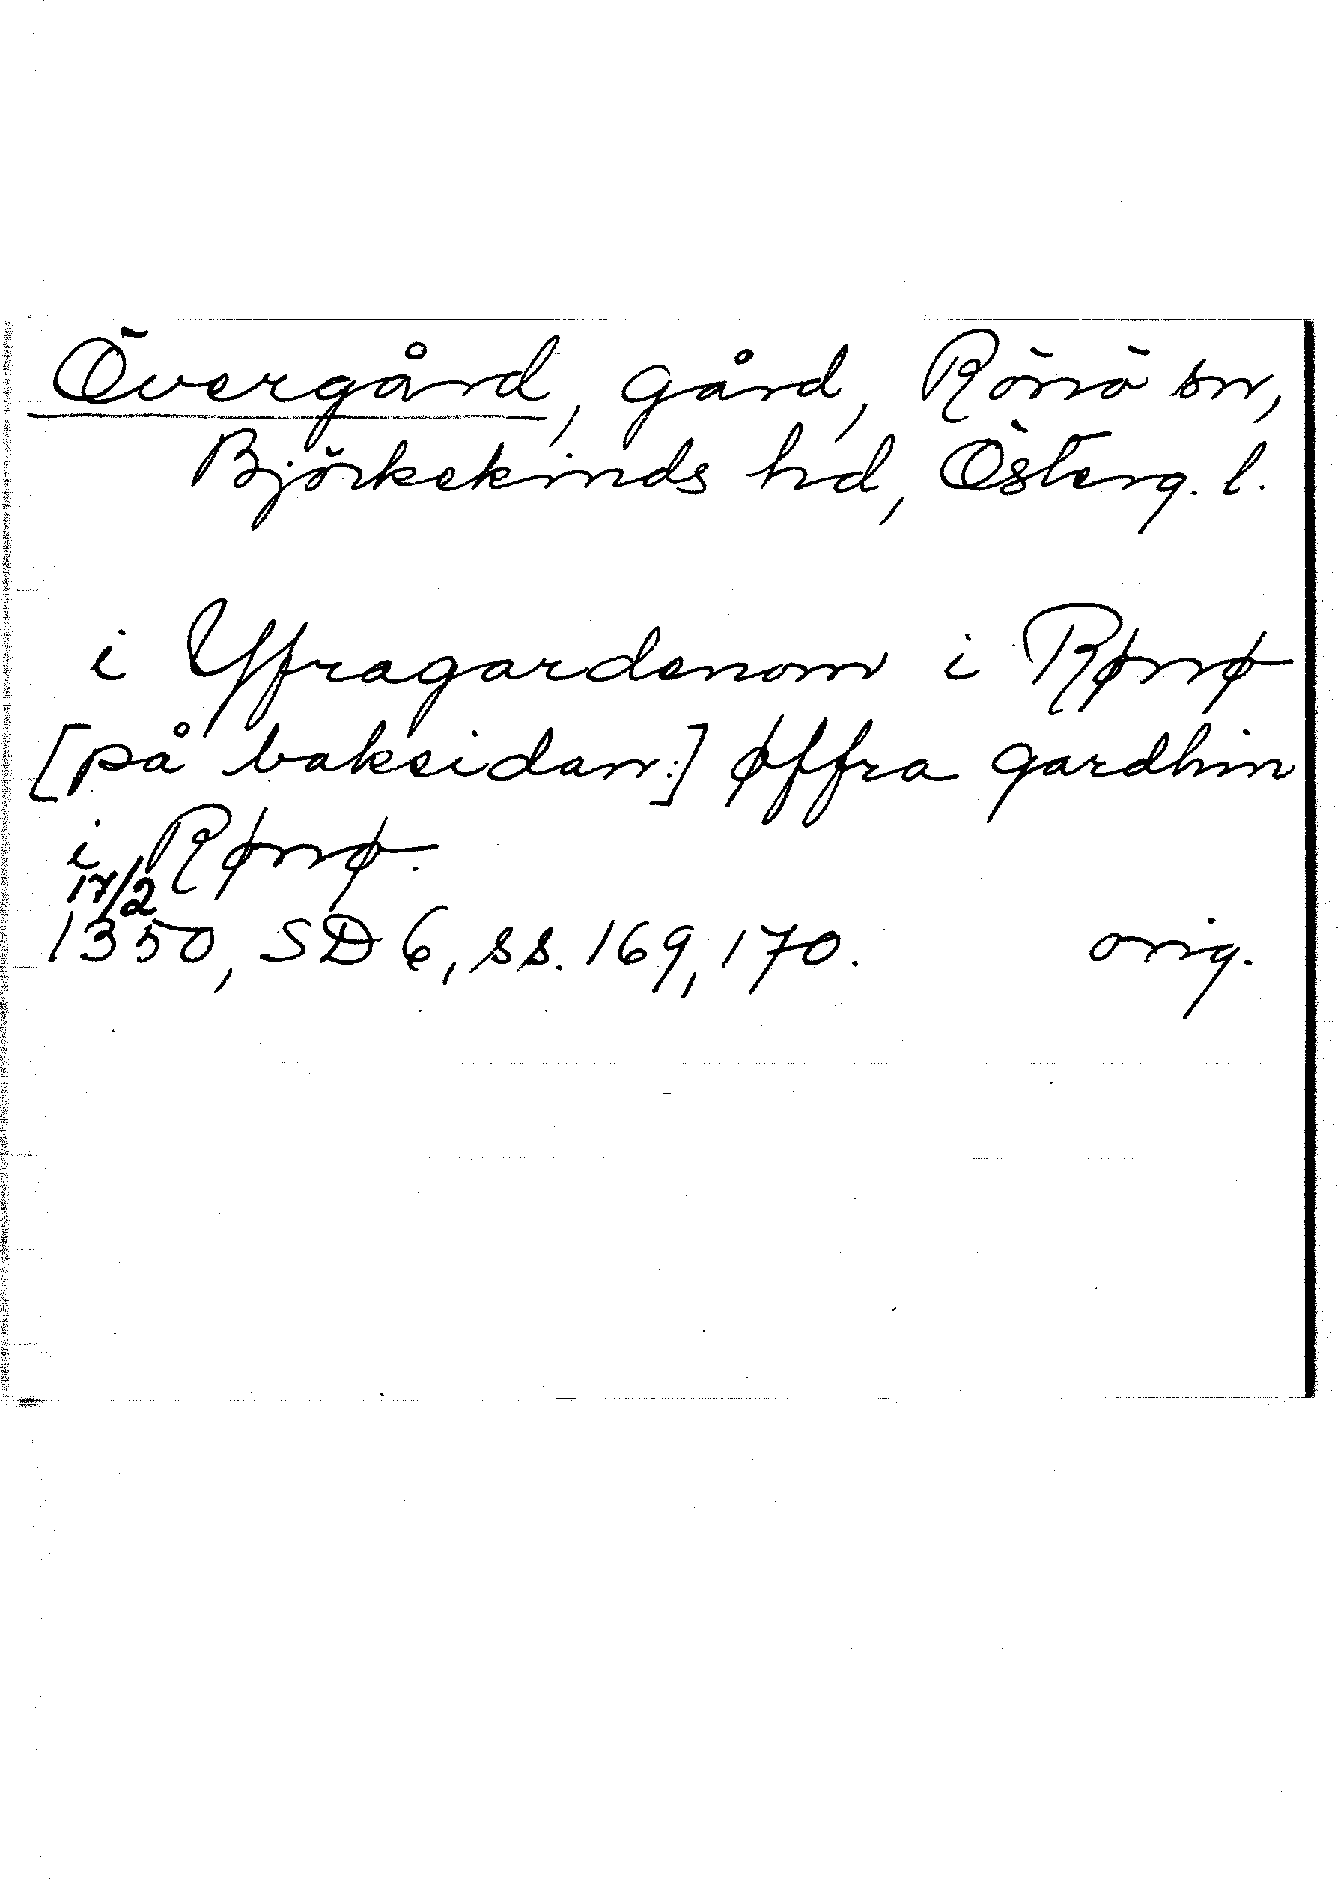 Övergård, gård, Rönö sn,
Björkekinds hd, Österg. l.
i Yfragardenom i Rønø
[på baksidan:] øffra gardhin
i Rønø.
17/2
1350, SD 6, ss. 169, 170. orig.